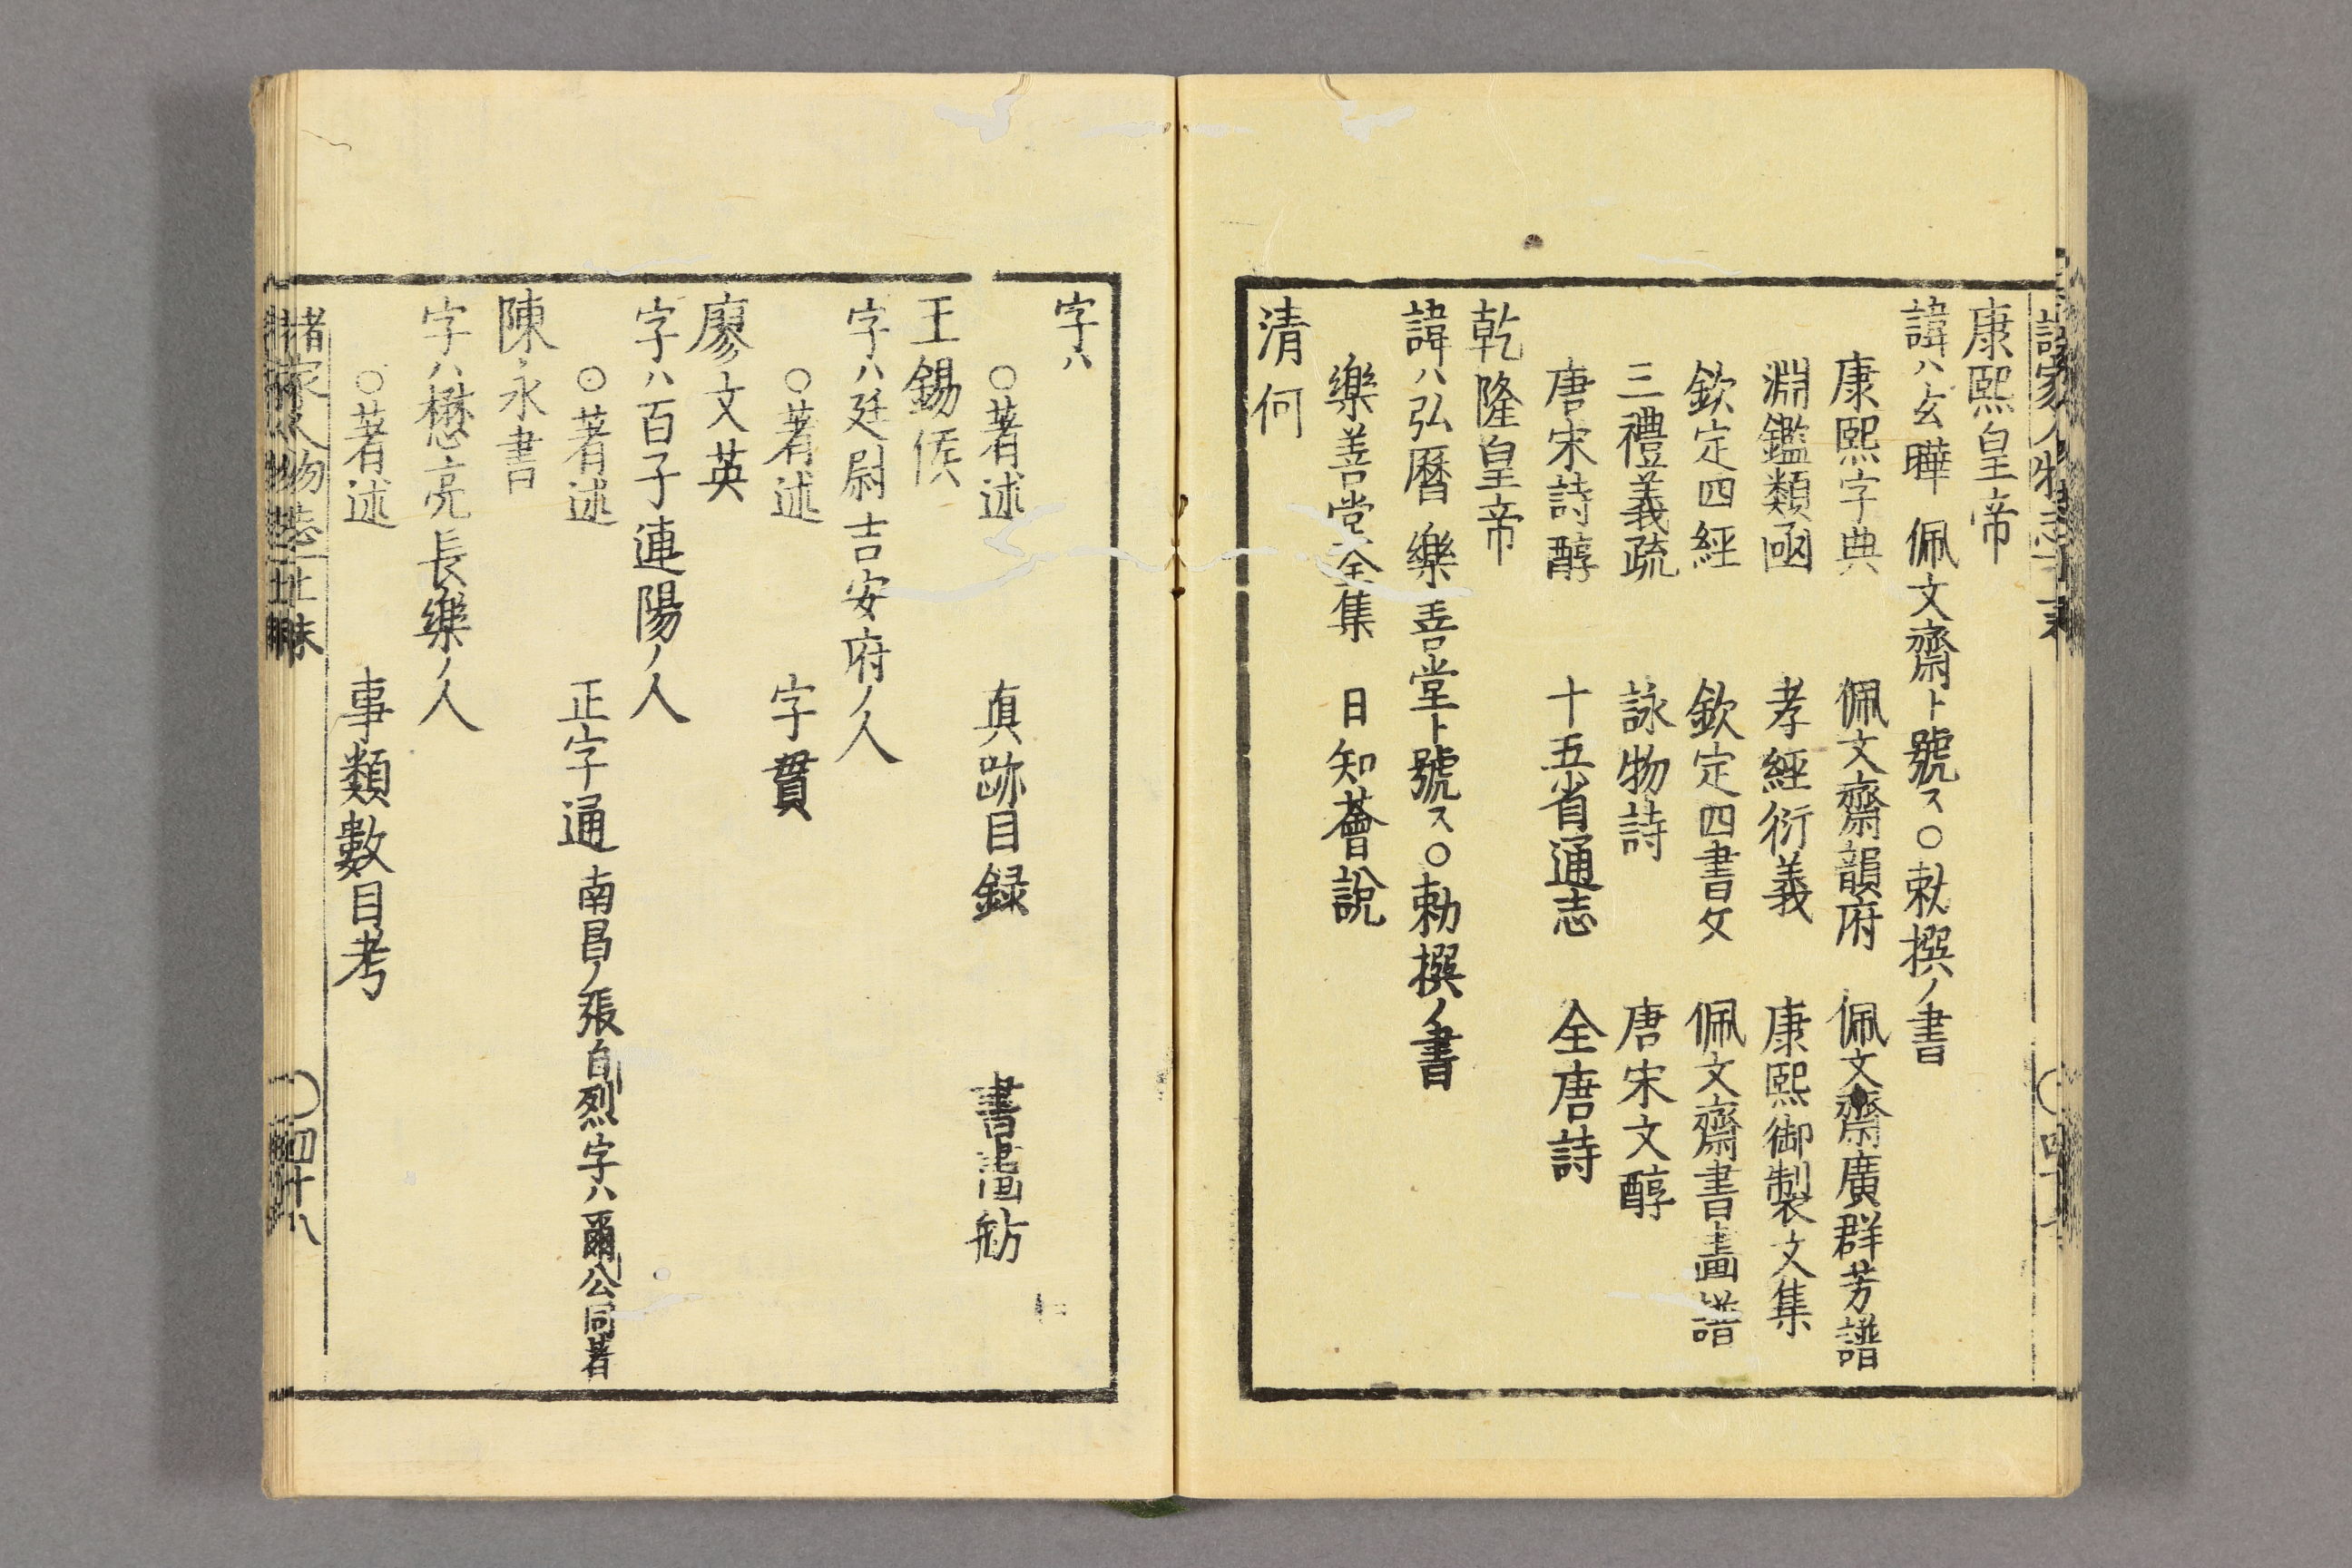 康熙皇帝
諱ハ玄曄 佩文齋ト號ス○敕撰ノ書
康熙字典 佩文齋韻府 佩文齋廣群芳譜
淵鑑類函 孝經衍義 康熙御製文集
欽定四經 欽定四書文 佩文齋書畫譜
三禮義疏 詠物詩 唐宋文醇
唐宋詩醇 十五省通志 全唐詩
乾隆皇帝
諱ハ弘曆 樂善堂ト號ス○勅撰ノ書
樂善堂全集 日知薈說
清何
字ハ
○著述 真跡目録 書畫舫
王錫侯
字ハ廷尉吉安府ノ人
○著述 字貫
廖文英
字ハ百子連陽ノ人
○著述 正字通 南昌ノ張自烈字ハ爾公同著
陳永書
字ハ懋亮長樂ノ人
○著述 事類數目考
諸家人物誌 上末
○四十八